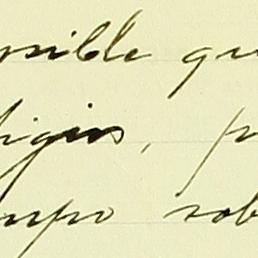 sible qu
igios, p
mpo sob